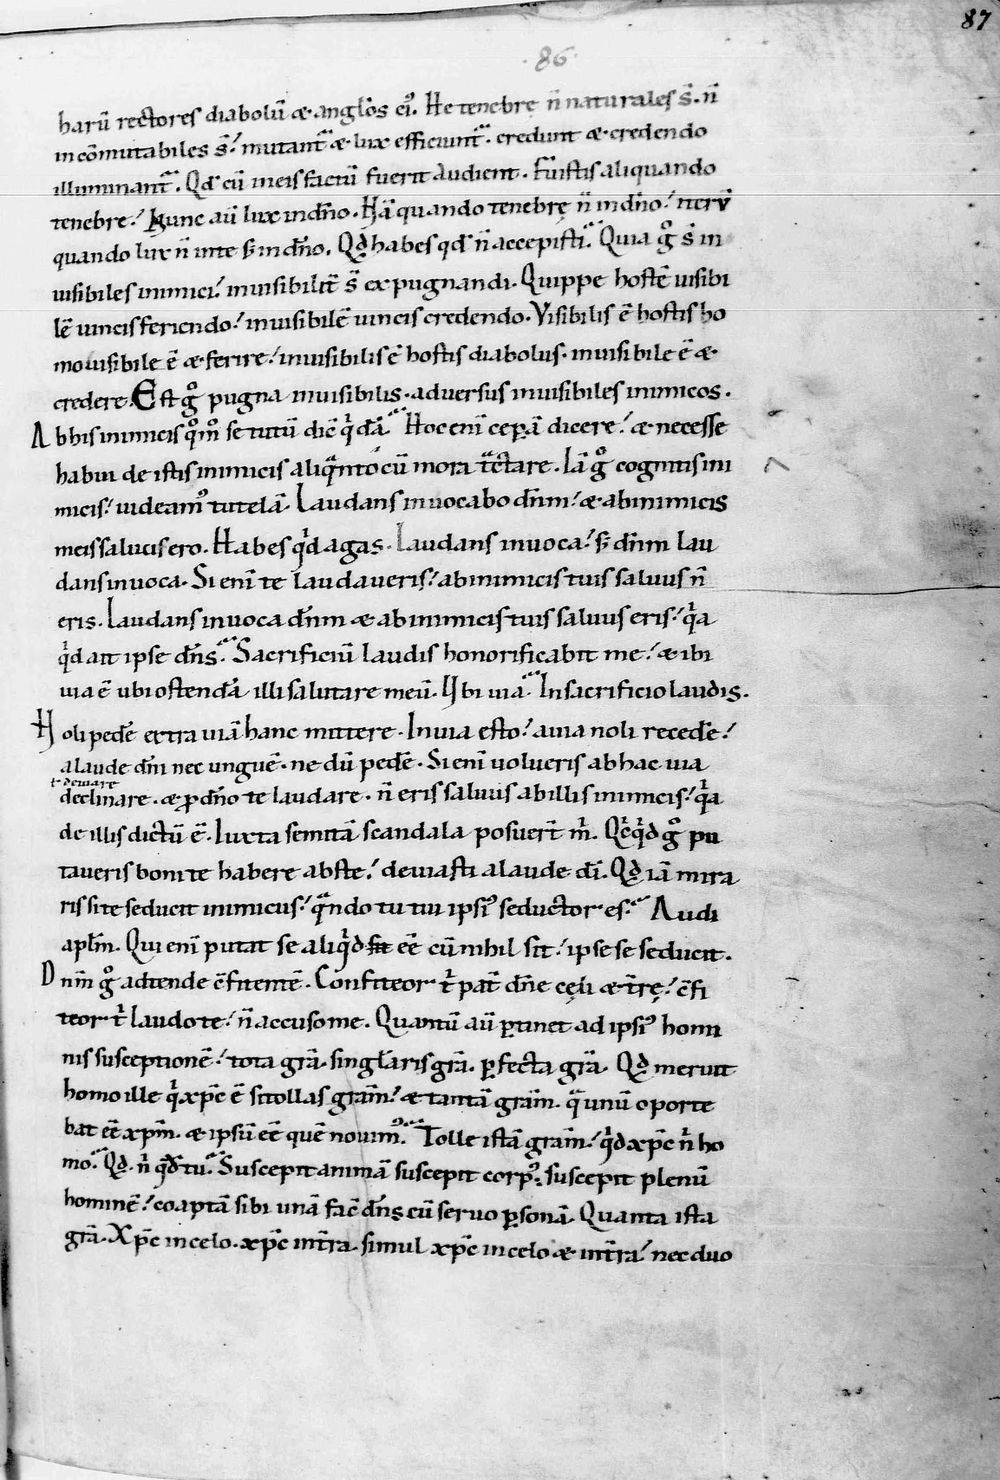 87
·86·
harū rectores diabolū & anglos ei᾽. He tenebrę n̄ naturales s̄. n̄
incōmutabiles s̄; mutant̄ & lux efficiunt̄. credunt & credendo
illuminant̄. Qđ cū in eis factū fuerit audient. Fuistis aliquando
tenebre; Nunc aū lux in dn̄o. Nā quando tenebrę n̄ in dn̄o; iterū
quando lux n̄ in te s; in dn̄o. Qđ habes qđ n̄ accepisti. Quia g̊ s̄ in
uisibiles inimici; inuisibilit̄ s̄ expugnandi. Quippe hostē uisibi
lē uincis feriendo; inuisibilē uincis credendo. Visibilis ē hostis ho
mo uisibile ē & ferire; inuisibilis ē hostis diabolus. inuisibile ē &
credere. Est g̊ pugna inuisibilis. aduersus inuisibiles inimicos.
Ab his inimicis qͦmͦ se tutū dic̄ q̇dā. Hoc enī cep̱ā dicere; & necesse
habui de istis inimicis aliqͣnto cū mora tͣctare. Iā g̊ cognitis ini
micis; uideam᾽ tutelā. Laudans inuocabo dn̄m; & ab inimicis
meis saluus ero. Habes q̇d agas. Laudans inuoca; s; dn̄m lau
dans inuoca. Si enī te laudaueris; ab inimicis tuis saluus n̄
eris. Laudans inuoca dn̄m & ab inimicis tuis saluus eris; q̇a
q̇d ait ipse dn̄s. Sacrificiū laudis honorificabit me; & ibi
uia ē ubi ostendā illi salutare meū. Vbi uia. In sacrificio laudis.
Noli pedē extra uiā hanc mittere. In uia esto; a uia noli recedē;
a laude dn̄i nec unguē. ne dū pedē. Si enī uolueris ab hac uia
ł deuiare
declinare. & p̄ dn̄o te laudare. n̄ eris saluus ab illis inimicis; q̇a
de illis dictū ē. Iuxta semitā scandala posuert̄ m̄. Qͨq̇d g̊ pu
taueris boni te habere abs te; deuiasti a laude dī. Qđ iā mira
ris si te seducit inimicus; qͣndo tu tui ipsi᾽ seductor es. Audi
apl̄m. Qui enī putat se aliq̇d eē cū nihil sit; ipse se seducit.
Dn̄m g̊ adtende c̄fitentē. Confiteor t̄ pat̄ dn̄e cęli & tr̄ę; c̄fi
teor t̄ laudo te; n̄ accuso me. Quantū aū p̱tinet ad ipsi᾽ homi
nis susceptionē; tota grā. singularis grā. p̱fecta grā. Qđ meruit
homo ille q̇ xp̄c ē si tollas grām; & tantā grām. qͣ unū oporte
bat eē xp̄m. & ipsū eē quē nouim᾽. Tolle istā grām; q̇d xp̄c n̄ ho
mo. Qđ n̄ qđ tu. Suscepit animā suscepit corp᾽. suscepit plenū
hominē; coaptā sibi unā fac̄ dn̄s cū seruo p̱sonā. Quanta ista
grā. Xp̄c in celo. xp̄c in tr̄ra. simul xp̄c in celo & in tr̄ra; nec duo